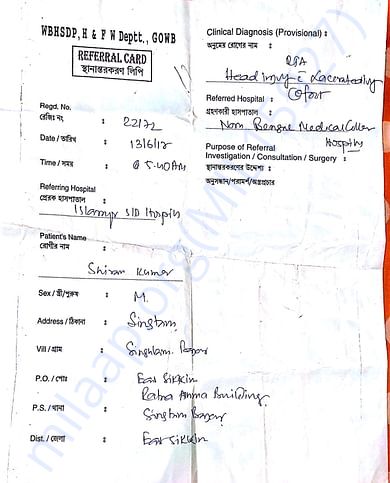 WBHSDP, H & F W Deptt., GOWB
REFERRAL CARD
স্থানান্তরকরণ লিপি
Regd. No.
রেজিঃ নং : 22/72
Date / তারিখ : 13/6/12
Time / সময় : @ 5.40AM
Referring Hospital
প্রেরক হাসপাতাল :
Islampur S/D Hospital
Patient's Name
রোগীর নাম :
Shivam Kumar
Sex / স্ত্রী/পুরুষ : M.
Address / ঠিকানা : Singtam
Vill / গ্রাম : Singtam Bazar
P.O. / পোঃ : East Sikkim
Ratna Anma Building
P.S. / থানা : Singtam Bazar
Dist. / জেলা : East Sikkim
Clinical Diagnosis (Provisional) :
অনুমেয় রোগের নাম :
RTA
Head injury c Lacerated
foot
Referred Hospital :
গ্রহণকারী হাসপাতাল :
North Bengal Medical College
Hospital
Purpose of Referral
Investigation / Consultation / Surgery :
স্থানান্তরকরণের উদ্দেশ্য :
অনুসন্ধান/পরামর্শ/অস্ত্রপ্রচার